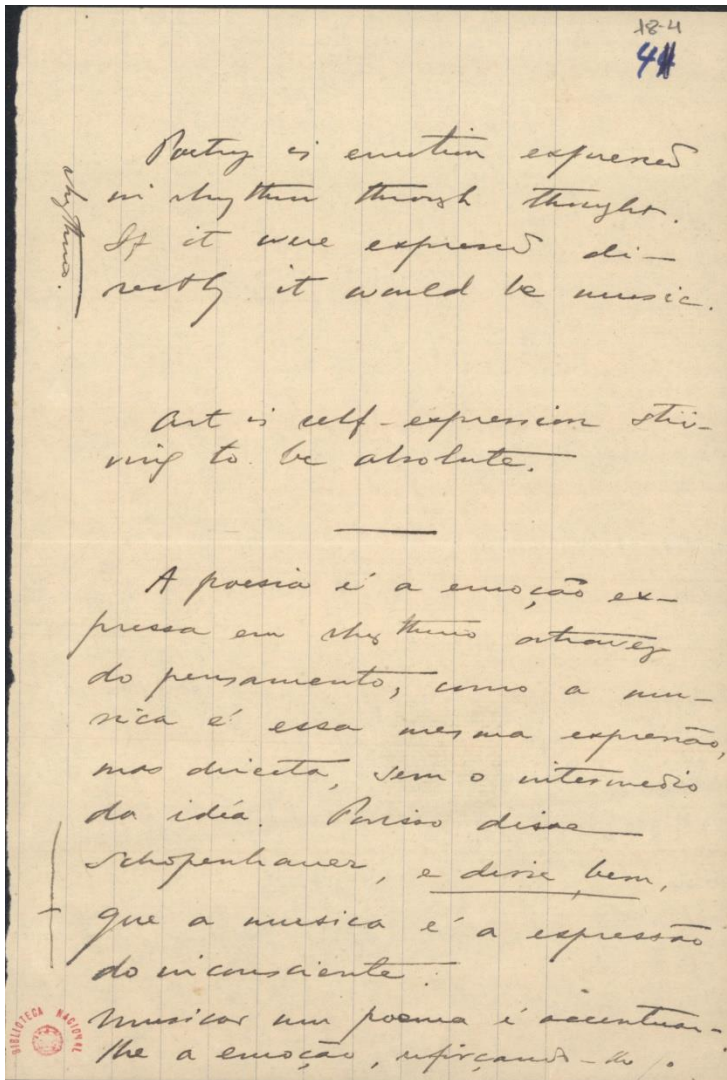 18-4
41
Poetry is emotion expressed
in rhythm through thought.
If it were expressed di-
rectly it would be music.
rhythmo.
Art is self-expression stri-
ving to be absolute.
A poesia é a emoção ex-
pressa em rhythmo atravez
do pensamento, como a mu-
sica é essa mesma expressão,
mas directa, sem o intermedio
da idéa. Por isso disse
Schopenhauer, e disse bem,
que a musica é a expressão
do inconsciente.
Musicar um poema é accentuar-
lhe a emoção, reforçando-lhe o
BIBLIOTECA NACIONAL